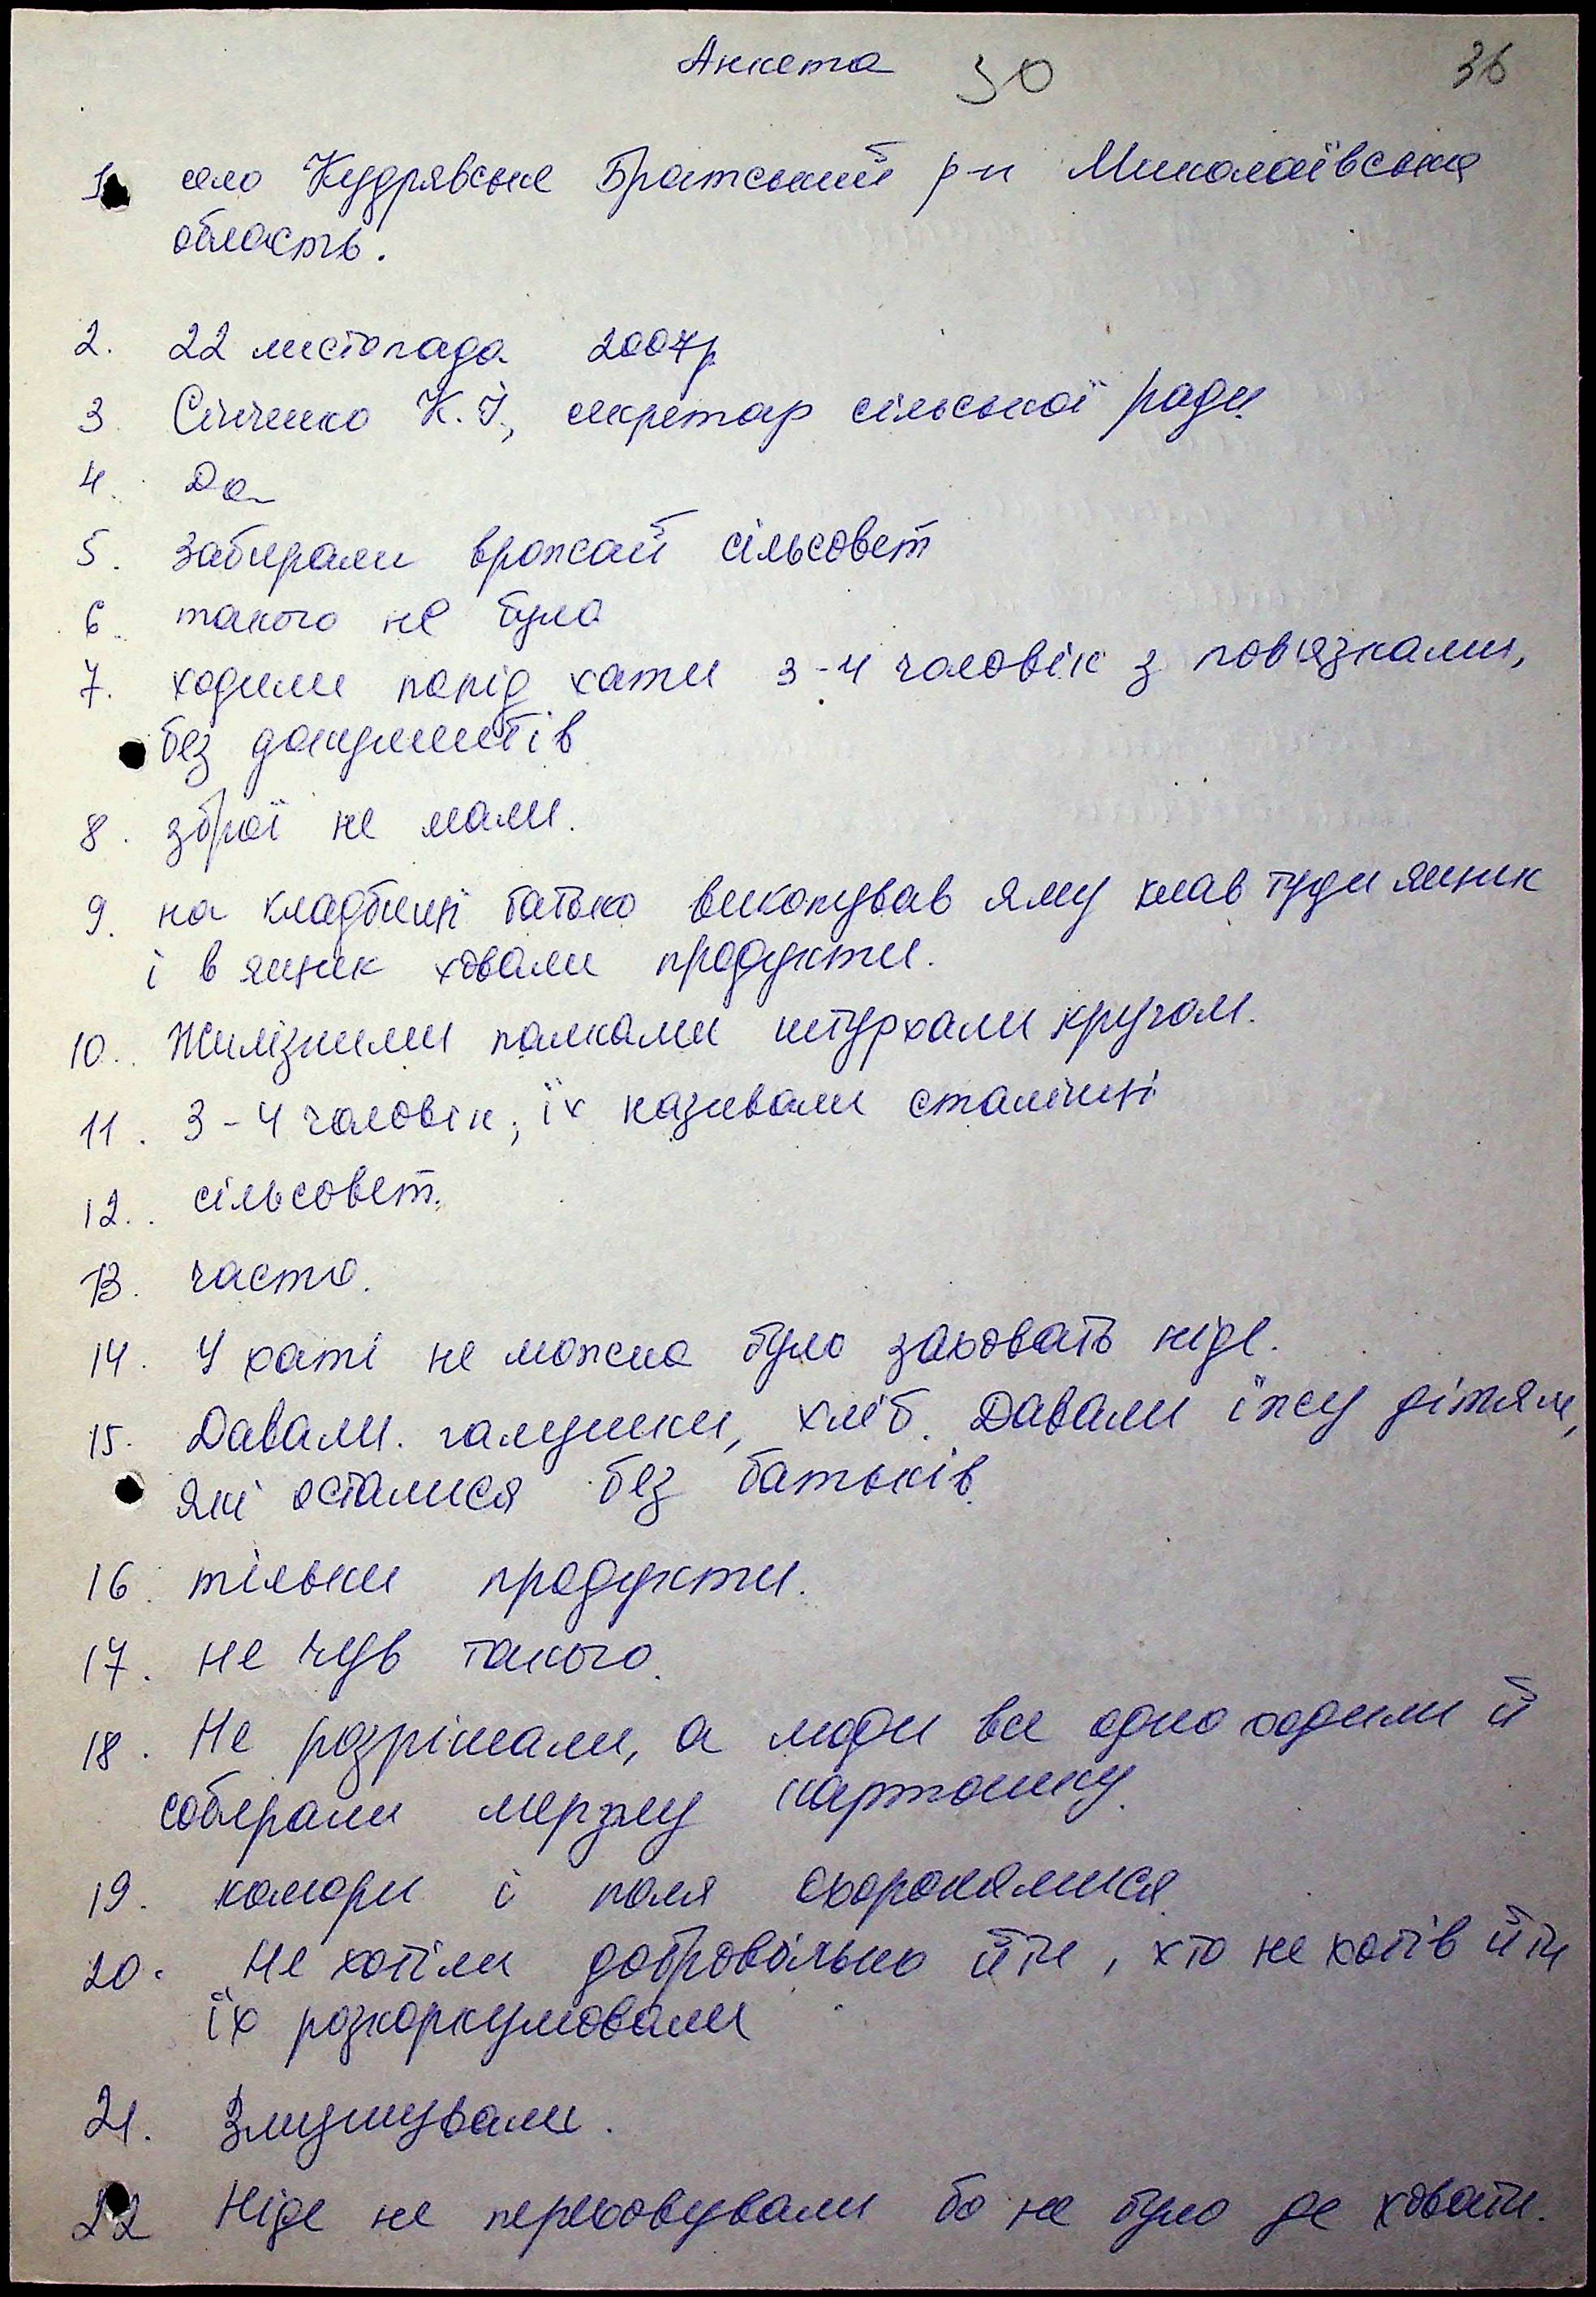 Анкета 30 36
1. село Кудрявське Братський р-н Миколаївська
область.
2. 22 листопада 2007р
3 Сінченко К.І., секретар сільської ради
4. Да
5. забирали врожай сільсовет
6. такого не було
7. ходили попід хати 3-4 чоловік з пов'язками,
без документів
8. зброї не мали.
9. на кладбищі батько викопував яму клав туди ящик
і в ящик ховали продукти.
10. Жилізними палками штурхали кругом.
11. 3-4 чоловік, їх називали сталінці
12. сільсовет.
13. часто.
14. У хаті не можна було заховать ніде.
15. Давали галушки, хліб. Давали їжу дітям,
які осталися без батьків.
16. тільки продукти.
17. не чув такого.
18. Не розрішали, а люди все одно ходили й
собирали мерзлу картошку.
19. комори і поля охоронялися.
20. Не хотіли добровільно йти, хто не хотів йти
їх розкоркумовали
21. Змушували.
22 Ніде не переховували бо не було де ховати.